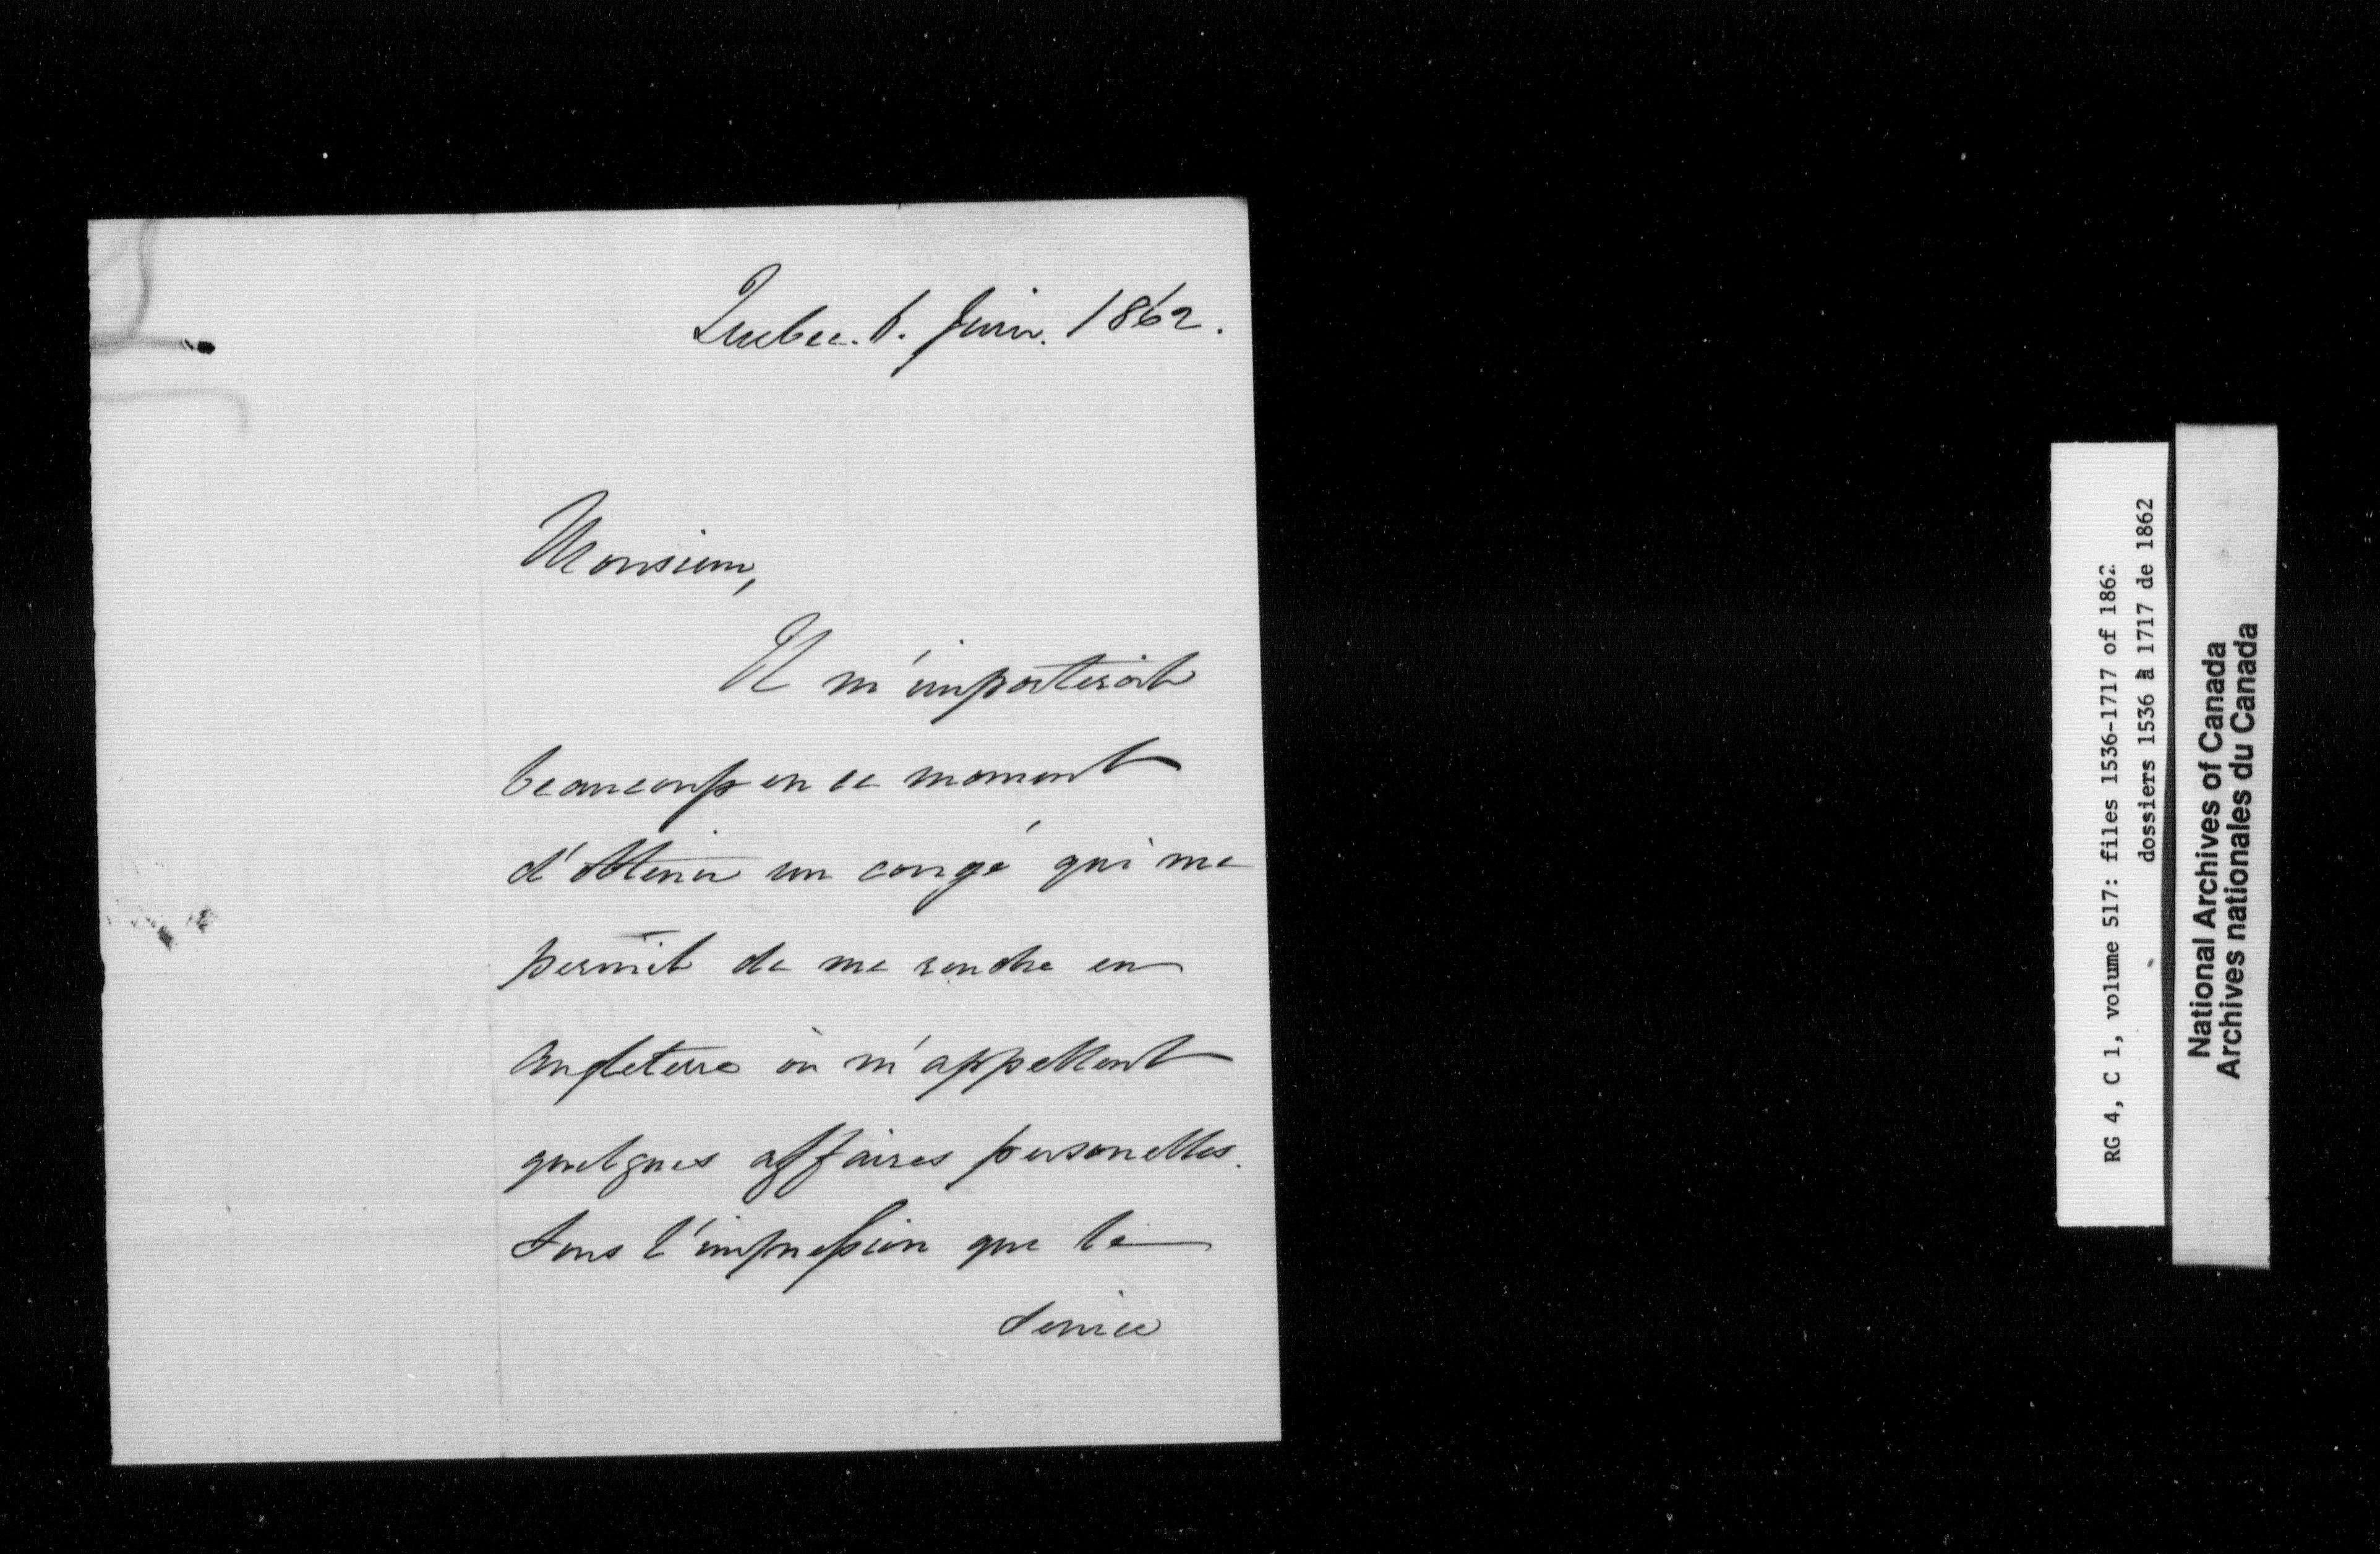 Quebec. 6. Juin. 1862.
Monsieur,
Il m'importerait
beaucoup en ce moment
d'obtenir un congé qui me
permit de me rendre en
Angleterre où m'appellent
quelques affaires personelles.
Sous l'impression que le
service
RG 4, C 1, volume 517: files 1536-1717 of 1862
dossiers 1536 à 1717 de 1862
National Archives of Canada
Archives nationales du Canada